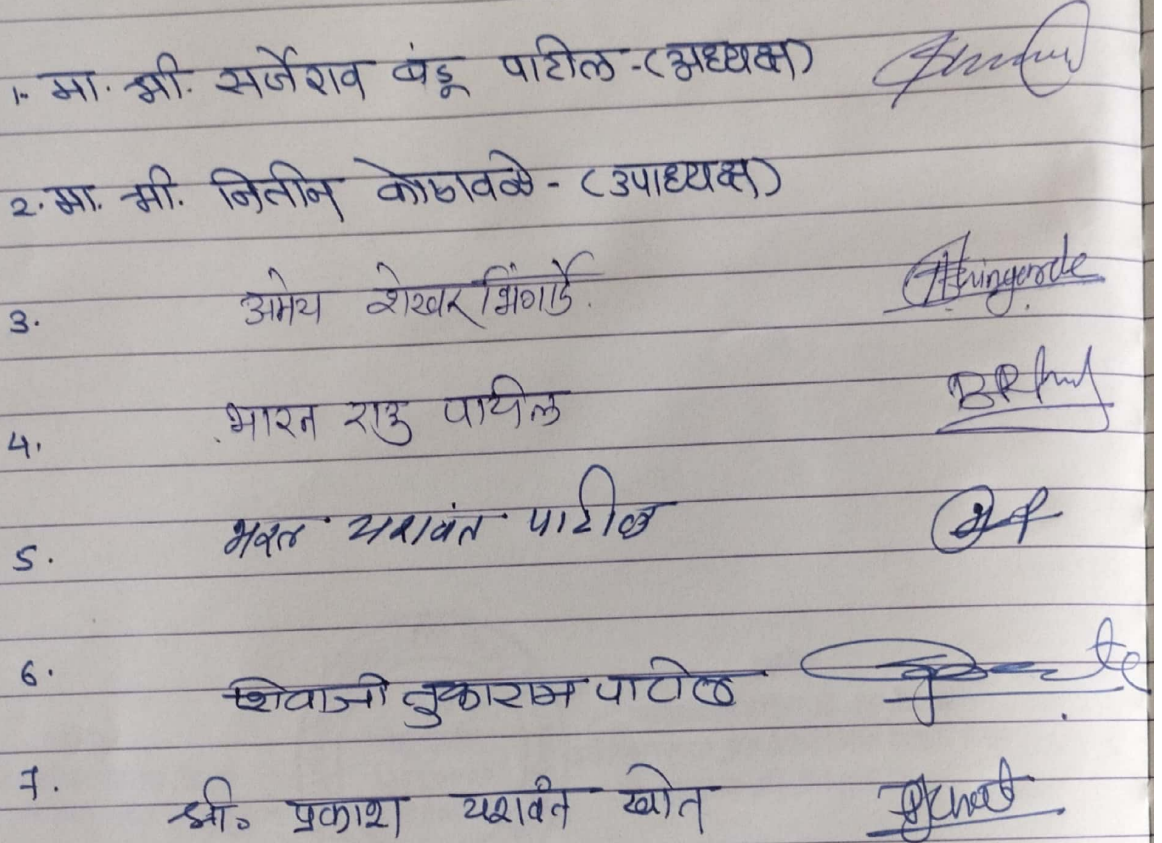 1. मा. श्री. सर्जेराव बंडू पाटील - (अध्यक्ष)
2. मा. श्री. नितीन - (उपाध्यक्ष)
3. अमेय शेखर भिंगार्डे.
4. भारत राऊ पाटील
5. भरत यशवंत पाटील
6. शिवाजी तुकाराम पाटील
7. श्री. प्रकाश यशवंत खोत